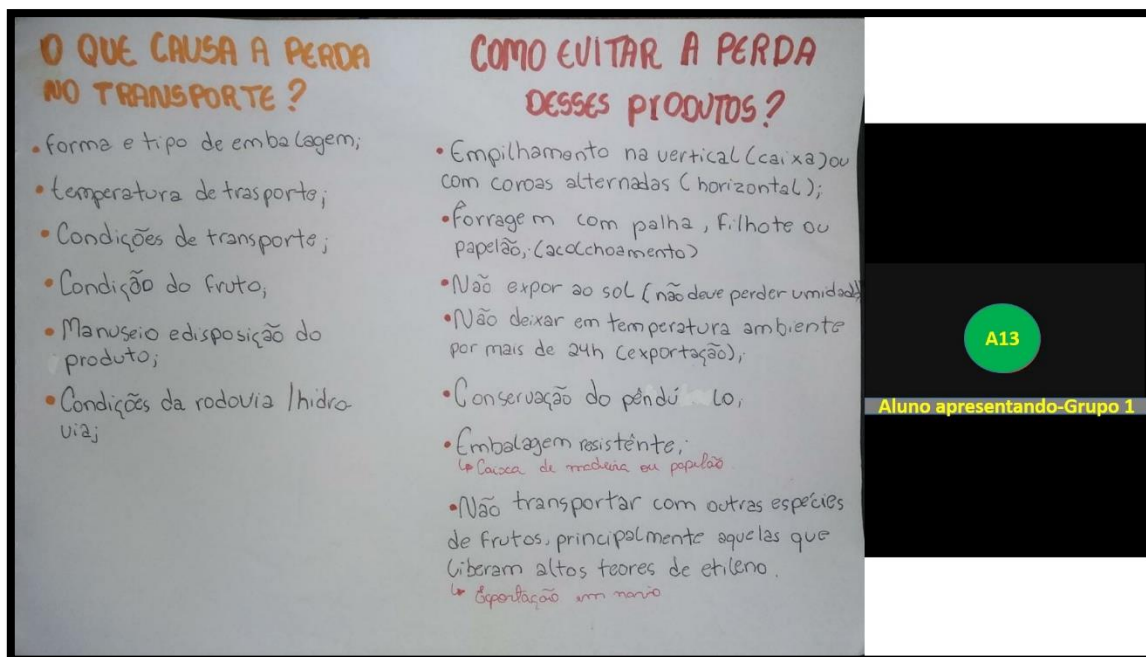 O QUE CAUSA A PERDA
NO TRANSPORTE?
• forma e tipo de embalagem;
• temperatura de trasporte;
• Condições de transporte;
• Condição do fruto;
• Manuseio e disposição do
produto;
• Condições da rodovia / hidro
via;
COMO EVITAR A PERDA
DESSES PRODUTOS?
• Empilhamento na vertical (caixa) ou
com coroas alternadas (horizontal);
• Forragem com palha, filhote ou
papelão; (acolchoamento)
• Não expor ao sol (não deve perder umidade)
• Não deixar em temperatura ambiente
por mais de 24h (exportação);
• Conservação do pêndú lo;
• Embalagem resistênte;
↳ Caixa de madeira ou papelão.
• Não transportar com outras espécies
de frutos, principalmente aquelas que
liberam altos teores de etileno.
↳ Exportação em navio
A13
Aluno apresentando-Grupo 1